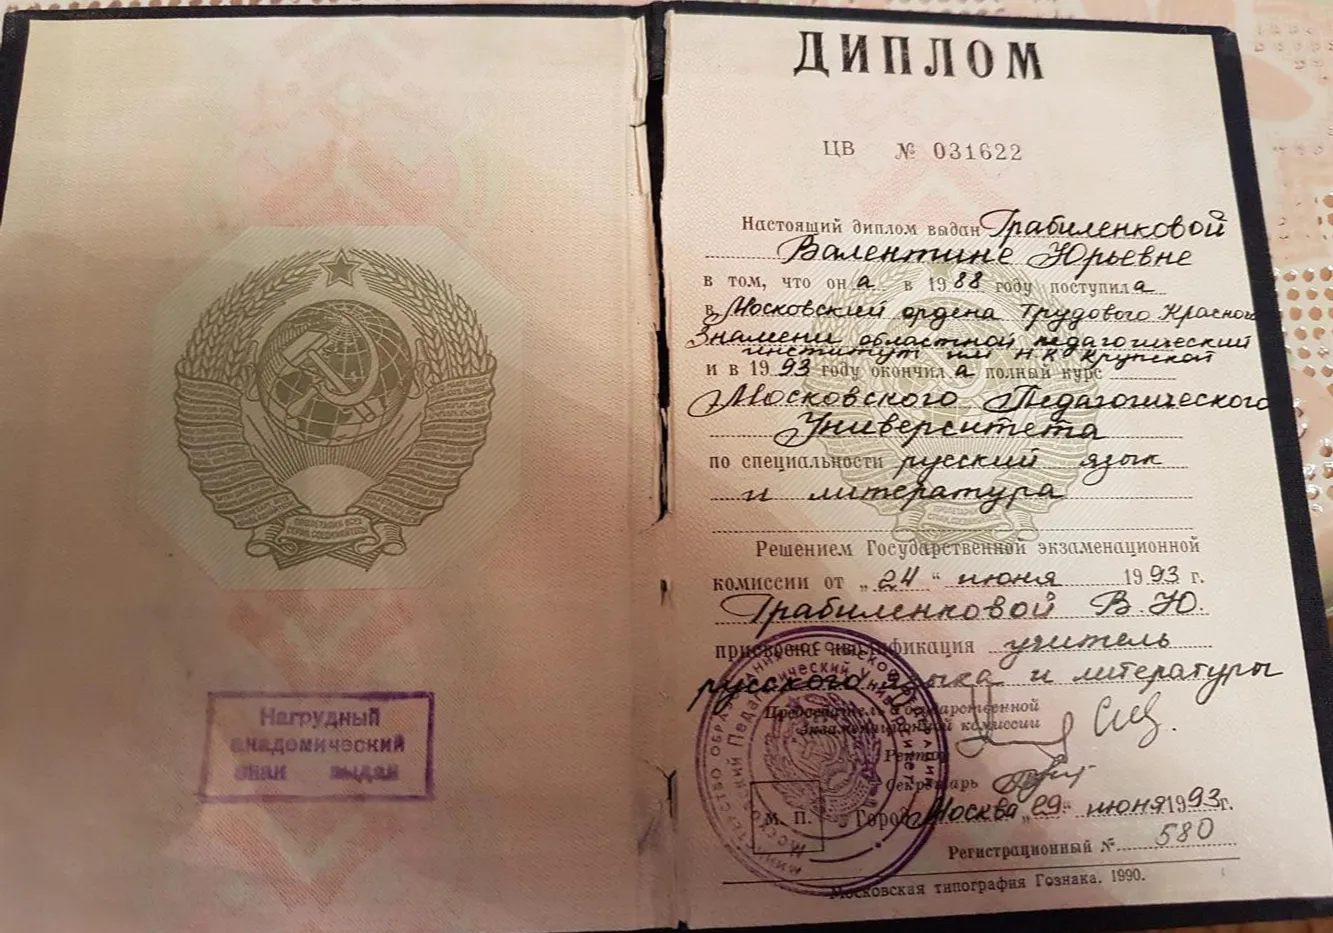 Нагрудный
академический
знак выдан
ДИПЛОМ
ЦВ № 031622
Настоящий диплом выдан Грабиленковой
Валентине Юрьевне
в том, что он а в 19 88 году поступил а
в Московский ордена Трудового Красного
Знамени областной педагогический
институт им Н.К. Крупской
и в 19 93 году окончил а полный курс
Московского Педагогического
Университета
по специальности русский язык
и литература
Решением Государственной экзаменационной
комиссии от „24“ июня 19 93 г.
Грабиленковой В.Ю.
присвоена квалификация учитель
русского языка и литературы
Председатель Государственной
экзаменационной комиссии
Ректор
Секретарь
М. П. Город Москва „29“ июня 19 93 г.
Регистрационный № 580
Московская типография Гознака. 1990.